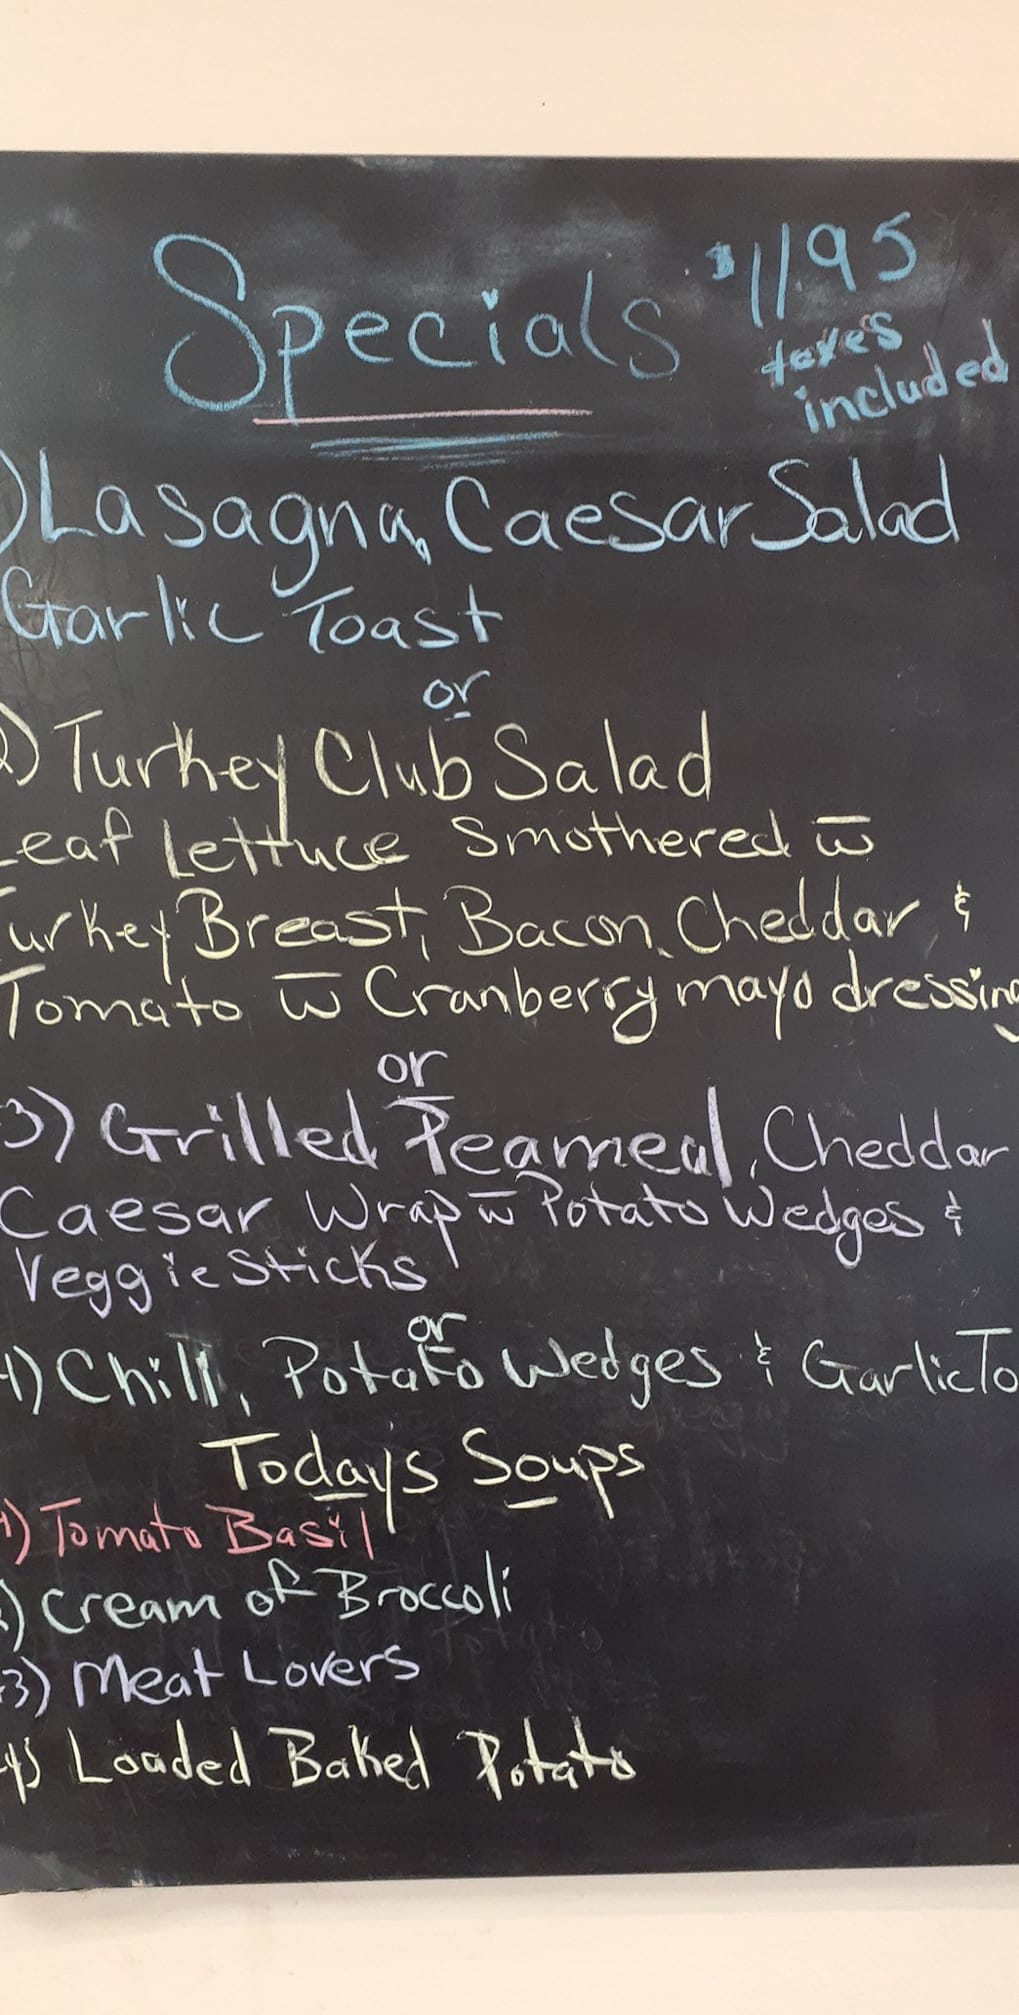 Specials $11.95
taxes
included
)Lasagna, Caesar Salad
Garlic Toast
or
2) Turkey Club Salad
Leaf Lettuce Smothered w̅
Turkey Breast, Bacon, Cheddar, &
Tomato w̅ Cranberry mayo dressing
or
3) Grilled Peameal, Cheddar
Caesar Wrap w̅ Potato Wedges &
Veggie Sticks
or
4) Chili, Potato Wedges & Garlic To
Today's Soups
1) Tomato Basil
2) Cream of Broccoli
3) Meat Lovers
4) Loaded Baked Potato